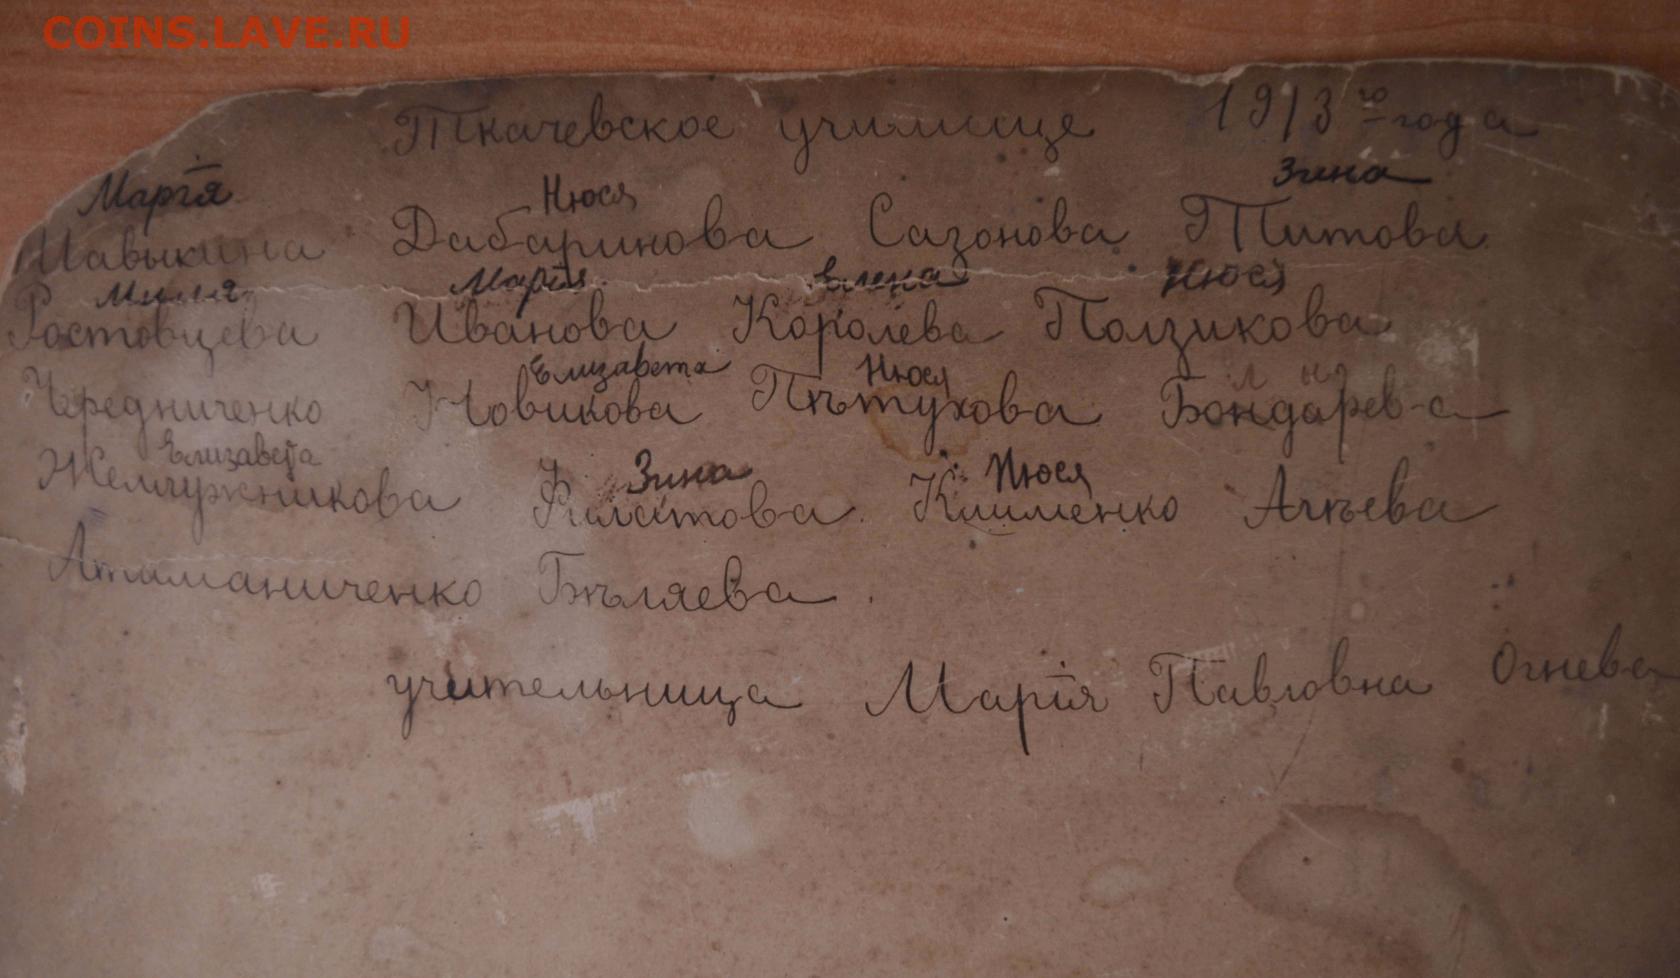 COINS.LAVE.RU
Ткачевское училище 1913 го года
Марія Нюся Зина
Шавыкина Дабаринова Сазонова Титова
Миля Марія Елена Нюся
Ростовцева Иванова Королева Ползикова
Елизавета Нюся
Чередниченко Новикова Пѣтухова Бондарева
Елизавета Зина Нюся
Жемчужникова Филатова Клименко Агѣева
Атаманиченко Бѣляева.
учительница Марія Павловна Огнева